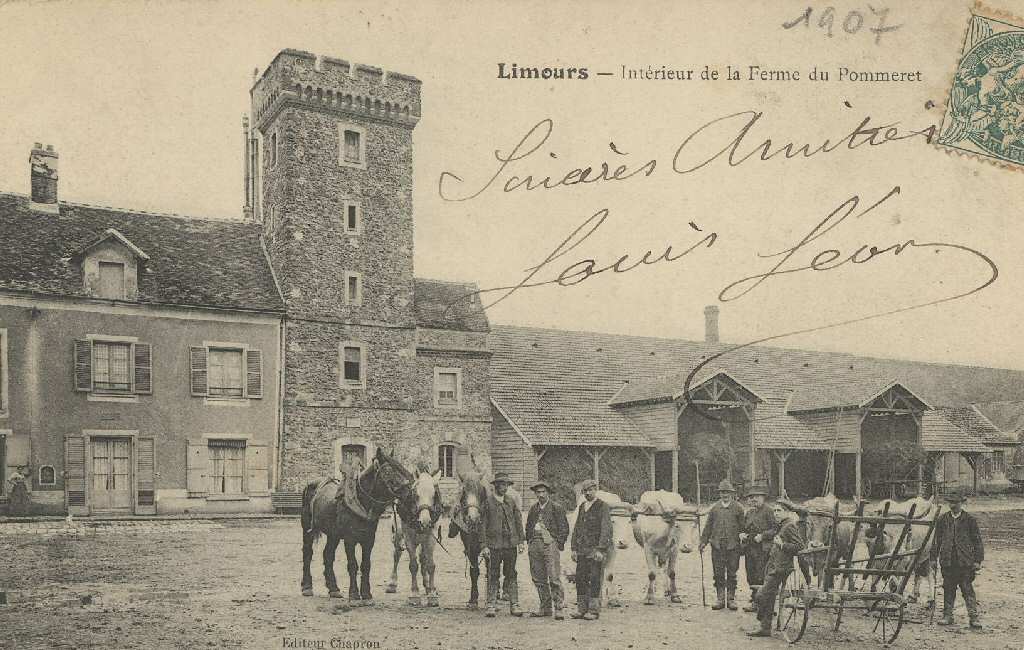 1907
Limours — Intérieur de la Ferme du Pommeret
Louis Léon
Editeur Chapron